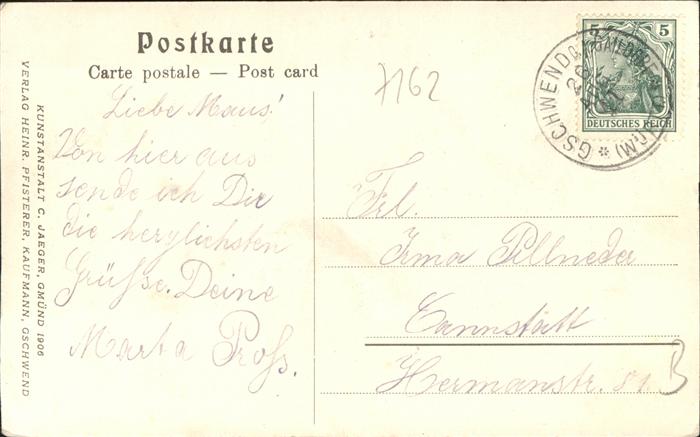 Postkarte
Carte postale — Post card
7162
5 5
DEUTSCHES REICH
GSCHWEND
Liebe Maus!
Von hier aus
sende ich Dir
die herzlichsten
Grüsse. Deine
Marta Profs.
Frl.
Irma Pillneder
Cannstatt
Hermanstr. 81. B
KUNSTANSTALT C. JAEGER, GMÜND 1906
VERLAG HEINR. PFISTERER, KAUFMANN, GSCHWEND